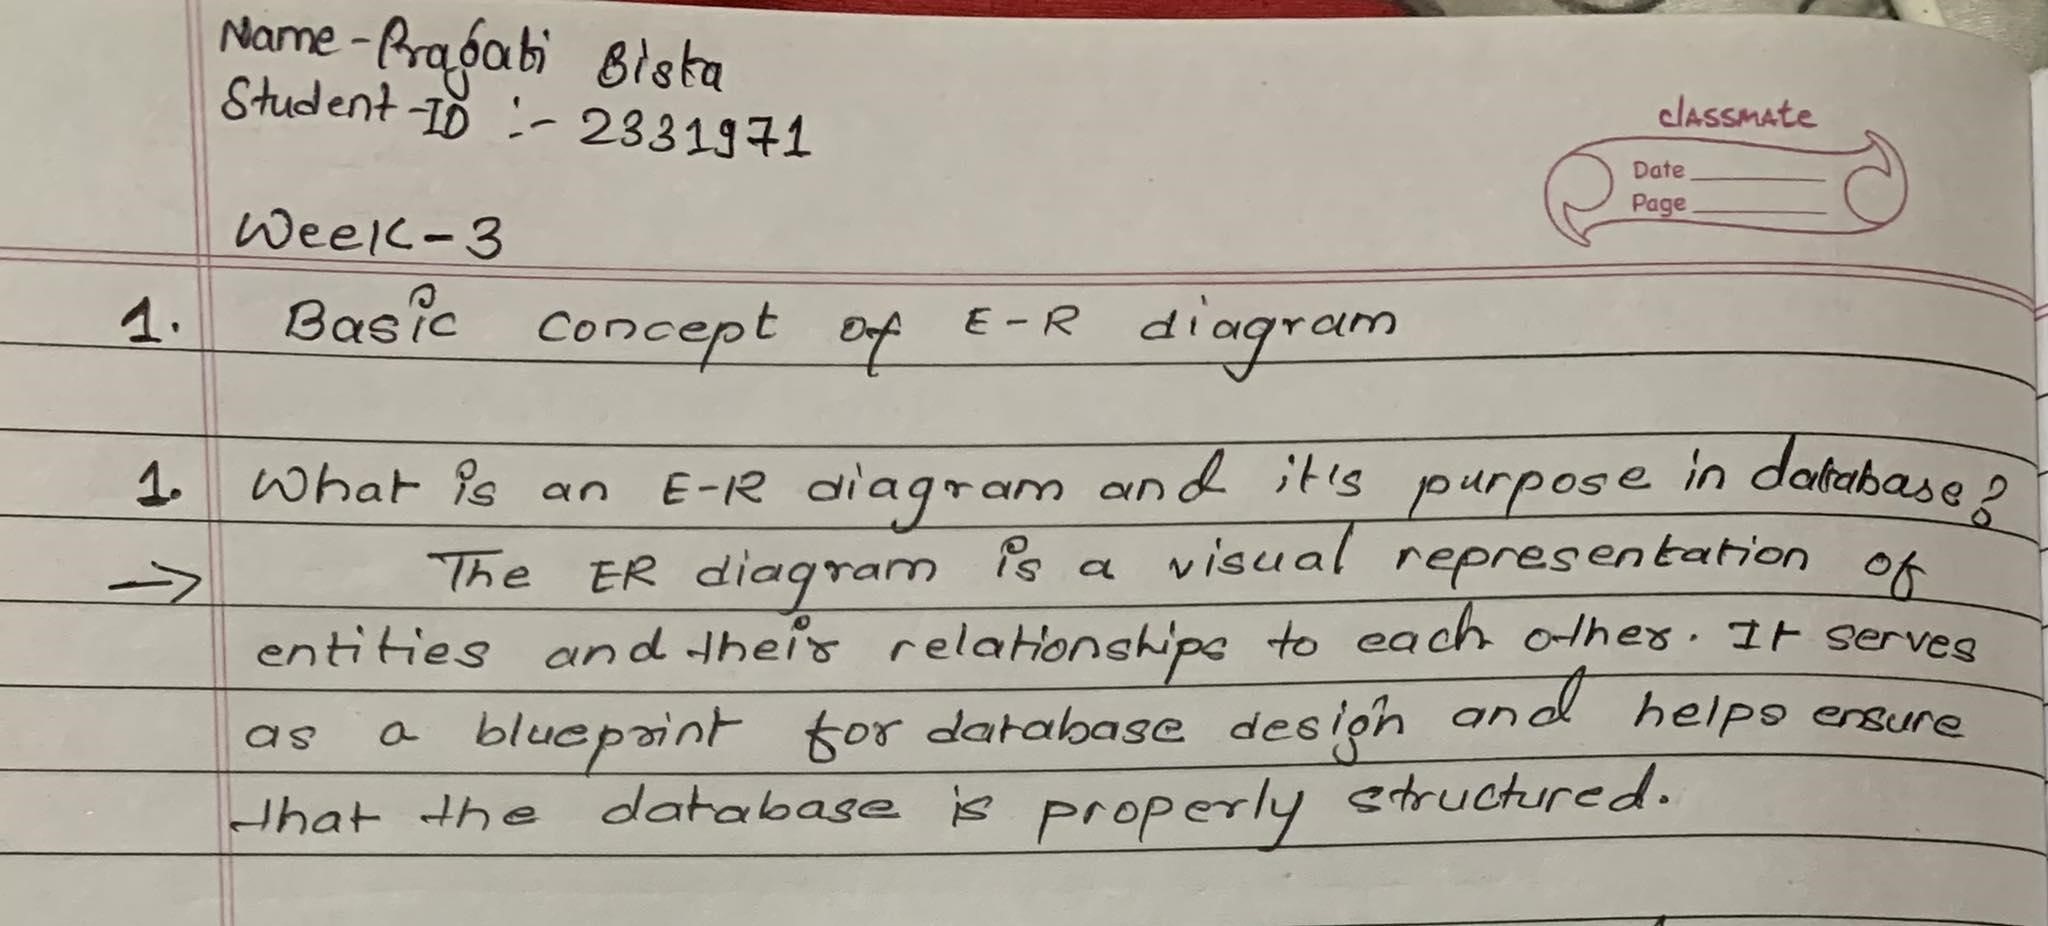 Name - Pragati Bista
Student-ID :- 2331971
classmate
Date
Page
Week-3
1. Basic concept of E-R diagram
1. What is an E-R diagram and it's purpose in database?
→ The ER diagram is a visual representation of
entities and their relationships to each other. It serves
as a blueprint for database design and helps ensure
that the database is properly structured.